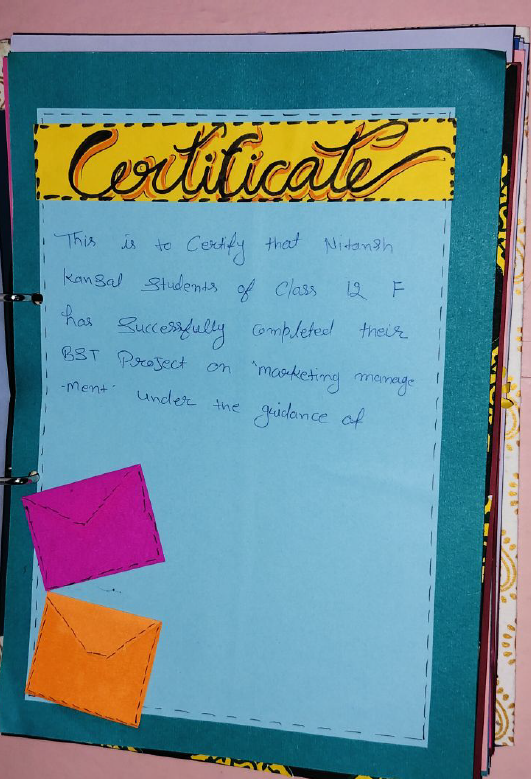 Certificate
This is to Certify that Nitansh
Kansal Students of Class 12 F
has Successfully completed their
BST Project on "marketing manage
-ment" under the guidance of